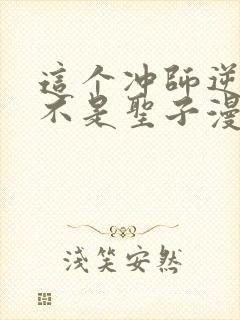 這个冲師逆
不是聖子漫
淺笑安然